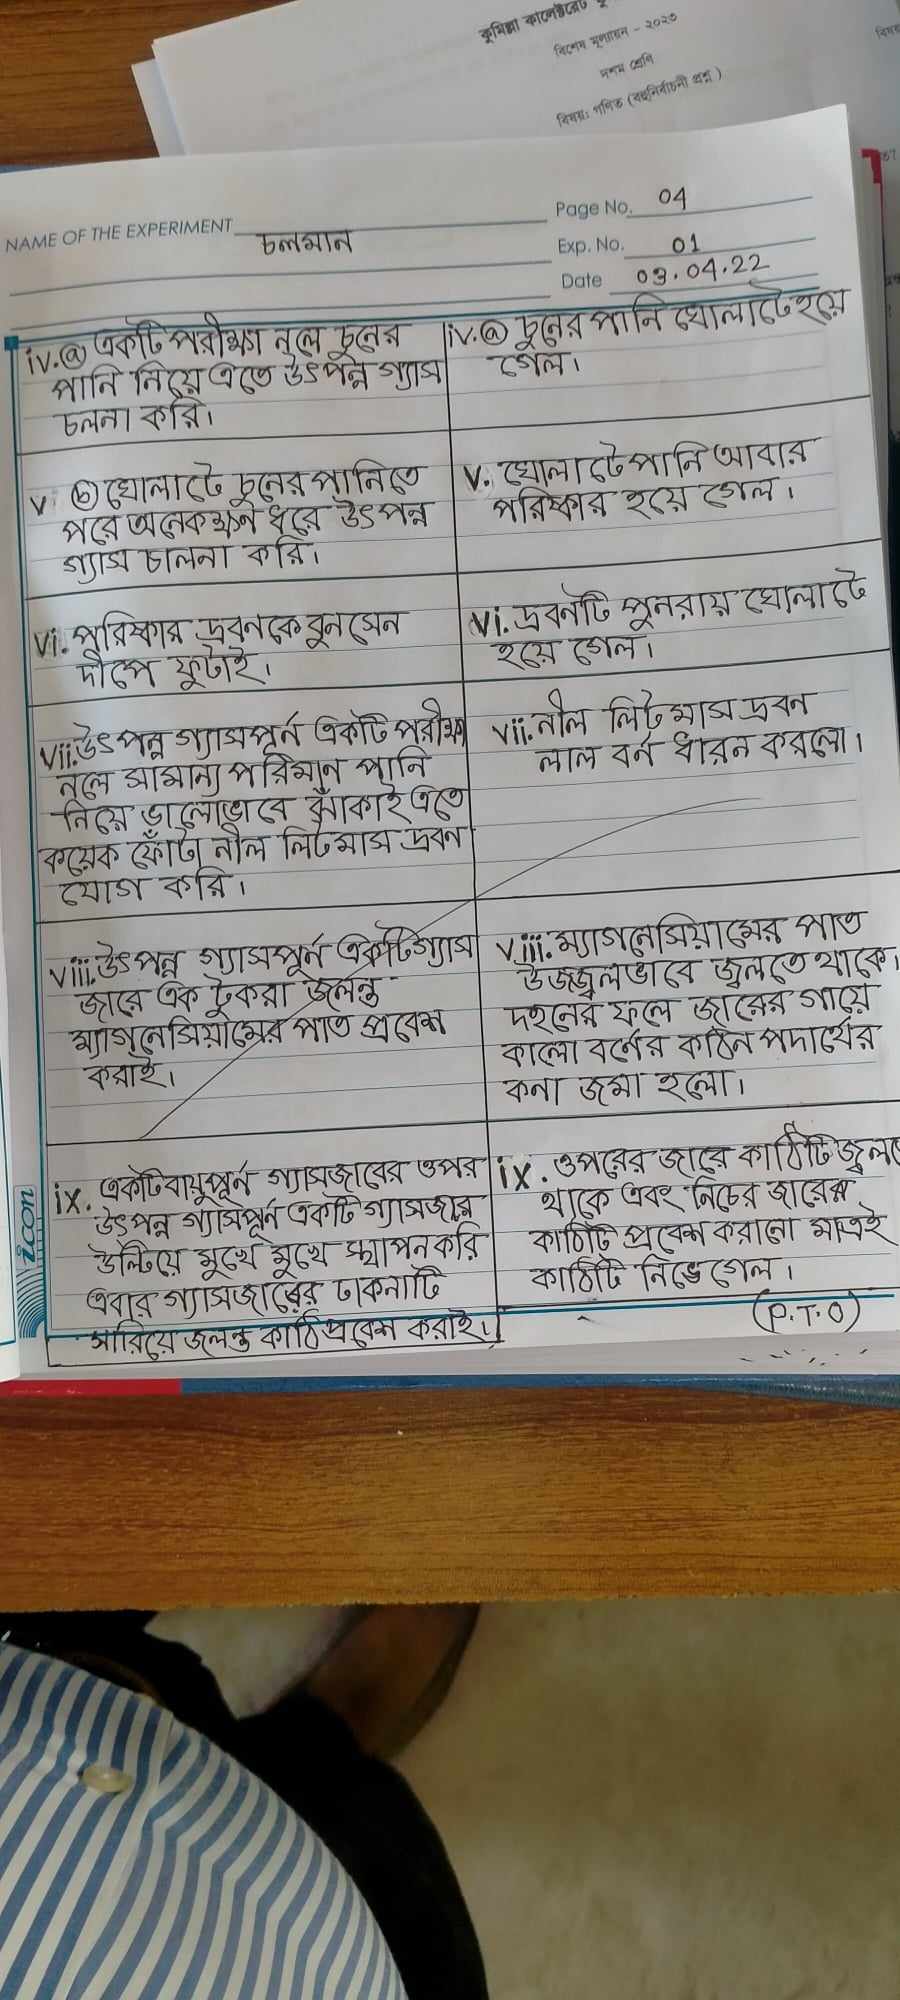 কুমিল্লা কালেক্টরেট
বিশেষ মূল্যায়ন - ২০২৩
দশম শ্রেণি
বিষয়: গণিত (বহুনির্বাচনী প্রশ্ন)
NAME OF THE EXPERIMENT চলমান
Page No. 04
Exp. No. 01
Date 03.04.22
iv.ⓐ একটি পরীক্ষা নলে চুনের
পানি নিয়ে এতে উৎপন্ন গ্যাস
চলনা করি।
iv.ⓐ চুনের পানি ঘোলাটে হয়ে
গেল।
v ⓑ ঘোলাটে চুনের পানিতে
পরে অনেকক্ষন ধরে উৎপন্ন
গ্যাস চালনা করি।
v. ঘোলাটে পানি আবার
পরিষ্কার হয়ে গেল।
vi. পরিষ্কার দ্রবনকে বুনসেন
দীপে ফুটাই।
vi. দ্রবনটি পুনরায় ঘোলাটে
হয়ে গেল।
vii. উৎপন্ন গ্যাসপূর্ন একটি পরীক্ষা
নলে সামান্য পরিমান পানি
নিয়ে ভালোভাবে ঝাঁকাই এতে
কয়েক ফোঁটা নীল লিটমাস দ্রবন
যোগ করি।
vii. নীল লিটমাস দ্রবন
লাল বর্ন ধারন করলো।
viii. উৎপন্ন গ্যাসপূর্ন একটি গ্যাস
জারে এক টুকরা জলন্ত
ম্যাগনেসিয়ামের পাত প্রবেশ
করাই।
viii. ম্যাগনেসিয়ামের পাত
উজজ্বলভাবে জ্বলতে থাকে।
দহনের ফলে জারের গায়ে
কালো বর্ণের কঠিন পদার্থের
কনা জমা হলো।
ix. একটি বায়ুপূর্ন গ্যাসজারের ওপর
উৎপন্ন গ্যাসপূর্ন একটি গ্যাসজার
উল্টিয়ে মুখে মুখে স্থাপন করি
এবার গ্যাসজারের ঢাকনাটি
সারিয়ে জলন্ত কাঠি প্রবেশ করাই।
ix. ওপরের জারে কাঠিটি জ্বলতে
থাকে এবং নিচের জারের
কাঠিটি প্রবেশ করানো মাত্রই
কাঠিটি নিভে গেল।
(P.T.O)
icon